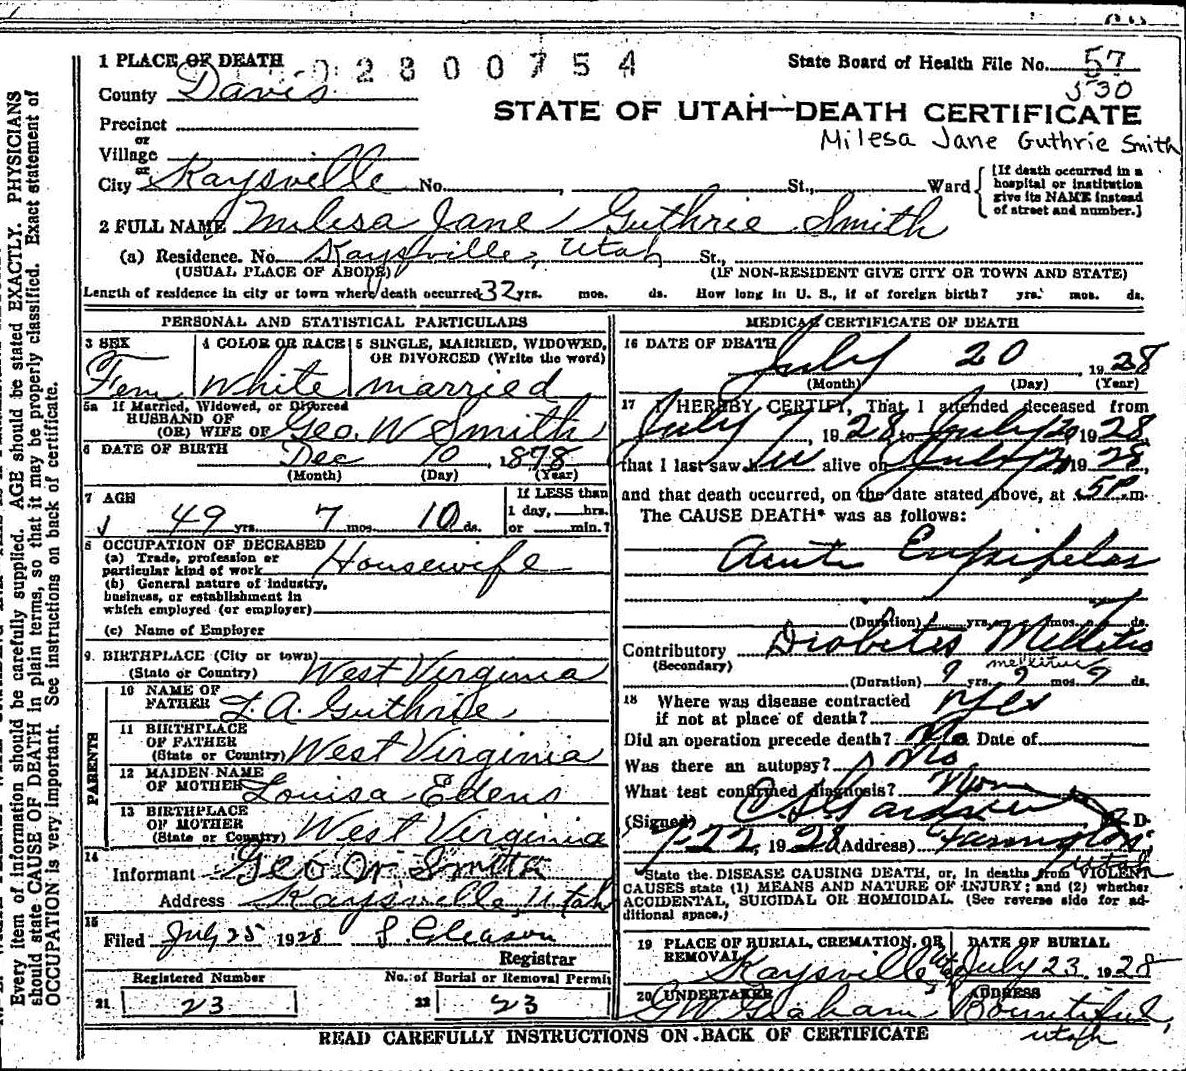 1 PLACE OF DEATH
2800754
State Board of Health File No. 57
530
County Davis
STATE OF UTAH—DEATH CERTIFICATE
Precinct
or
Milesa Jane Guthrie Smith
Village
or
City Kaysville No. , St., Ward
[If death occurred in a
hospital or institution
give its NAME instead
of street and number.]
2 FULL NAME Milesa Jane Guthrie Smith
(a) Residence. No. Kaysville, Utah St.,
(USUAL PLACE OF ABODE)
(IF NON-RESIDENT GIVE CITY OR TOWN AND STATE)
Length of residence in city or town where death occurred 32 yrs. mos. ds. How long in U. S., if of foreign birth? yrs. mos. ds.
PERSONAL AND STATISTICAL PARTICULARS
3 SEX
4 COLOR OR RACE
5 SINGLE, MARRIED, WIDOWED,
OR DIVORCED (Write the word)
Fem White married
5a If Married, Widowed, or Divorced
HUSBAND OF
(OR) WIFE OF Geo. W Smith
6 DATE OF BIRTH Dec 10, 1878
(Month) (Day) (Year)
7 AGE
If LESS than
1 day, hrs.
or min.?
49 yrs. 7 mos. 10 ds.
8 OCCUPATION OF DECEASED
(a) Trade, profession or
particular kind of work Housewife
(b) General nature of industry,
business, or establishment in
which employed (or employer)
(c) Name of Employer
9. BIRTHPLACE (City or town)
(State or Country) West Virginia
PARENTS
10 NAME OF
FATHER A. Guthrie
11 BIRTHPLACE
OF FATHER
(State or Country) West Virginia
12 MAIDEN NAME
OF MOTHER Louisa Edens
13 BIRTHPLACE
OF MOTHER
(State or Country) West Virginia
14
Informant Geo W Smith
Address Kaysville, Utah
15
Filed July 25 1928 S Gleason
Registrar
Registered Number
No. of Burial or Removal Permit
21 23
22 23
MEDICAL CERTIFICATE OF DEATH
16 DATE OF DEATH
July 20, 1928
(Month) (Day) (Year)
17 I HEREBY CERTIFY, That I attended deceased from
July 7, 1928 to July 20 1928
that I last saw her alive on July 20 1928,
and that death occurred, on the date stated above, at 5P m.
The CAUSE DEATH* was as follows:
Acute Erysipelas
(Duration) yrs. mos. ds.
Contributory Diabetis Mellitis
mellitus
(Secondary)
(Duration) ? yrs. ? mos. ? ds.
18 Where was disease contracted
if not at place of death? yes
Did an operation precede death? No Date of
Was there an autopsy? No
What test confirmed diagnosis?
(Signed) Gardner M D
7-22, 1928 (Address) Farmington,
Utah
State the DISEASE CAUSING DEATH, or, in deaths from VIOLENT
CAUSES state (1) MEANS AND NATURE OF INJURY; and (2) whether
ACCIDENTAL, SUICIDAL OR HOMICIDAL. (See reverse side for ad-
ditional space.)
19 PLACE OF BURIAL, CREMATION, OR
REMOVAL
DATE OF BURIAL
Kaysville Utah July 23 1928
20 UNDERTAKER
ADDRESS
GW Graham Bountiful,
Utah
READ CAREFULLY INSTRUCTIONS ON BACK OF CERTIFICATE
Every item of information should be carefully supplied. AGE should be stated EXACTLY. PHYSICIANS
should state CAUSE OF DEATH in plain terms, so that it may be properly classified. Exact statement of
OCCUPATION is very important. See instructions on back of certificate.